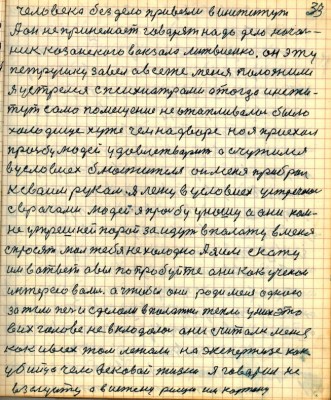 33
человека без дело привезли в институт
А он не принемает говорят надо дело нача-
ник казанского вокзала литвиенко. он эту
петрушку завел а все же меня положили
я устрелся с психиатрами а тогда инсти-
тут само помещение не отапливалои было
холодище хуже чем на дворе но я приехал
прозбу людей удовлетворит
в условиех б меня прибрал
к своим рукам. я лежу в условиех
с врачами людей я прозбу уношу а они ко мне
не утренней порой заидут в палату в меня
спросят мол тебя не холодно А я им скажу
им в ответ а вы попробуйте они как
интересовали. а чтобы они ради меня одного
затем печ и сделали в палати тепло уних это
в их голове не вклодалос они считали меня
как и всех там лежали на экспертизе как
убийцо человековой жизни я говорил не
взалкупту а в ижени рищи им картину